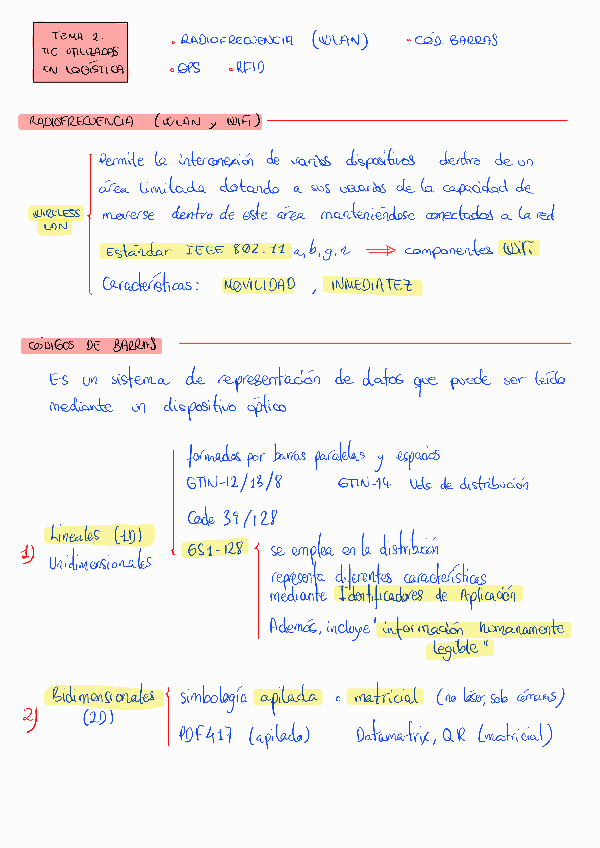 TEMA 2.
TIC UTILIZADAS
EN LOGÍSTICA
• RADIOFRECUENCIA (WLAN) • CÓD. BARRAS
• GPS • RFID
RADIOFRECUENCIA (WLAN y WIFI)
WIRELESS LAN
Permite la interconexión de varios dispositivos dentro de un
área limitada dotando a sus usuarios de la capacidad de
moverse dentro de este área manteniéndose conectados a la red
Estándar IEEE 802.11 a, b, g, n ⇒ componentes Wifi
Características: MOVILIDAD, INMEDIATEZ
CÓDIGOS DE BARRAS
Es un sistema de representación de datos que puede ser leído
mediante un dispositivo óptico
1) Lineales (1D)
Unidimensionales
formados por barras paralelas y espacios
GTIN-12/13/8 GTIN-14 Uds. de distribución
Code 39/128
GS1-128
se emplea en la distribución
representa diferentes características
mediante Identificadores de Aplicación
Además, incluye "información humanamente
legible"
2) Bidimensionales
(2D)
simbología apilada o matricial (no láser, solo cámaras)
PDF417 (apilada) Datamatrix, QR (matricial)